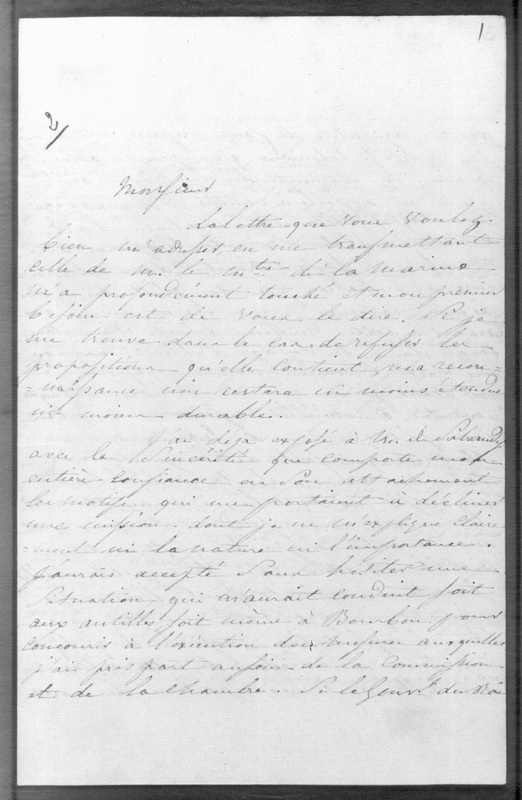 1
2/
Monsieur
La lettre que vous voulez
bien m'adresser, en me transmettant
celle de M. le mtre de la marine
m'a profondément touché et mon premier
besoin est de vous le dire. Si je
me trouve dans le cas de refuser les
propositions qu'elle contient, ma recon-
-naissance n'en restera ni moins étendue
ni moins durable.
J'ai déja exposé à Mr. de Salvandy
avec la Sincérité que comporte mon
entière confiance en Son attachement
les motifs qui me portaient à décliner
une mission dont je ne m'explique claire
-ment ni la nature ni l'importance.
J'aurais accepté Sans hésiter une
Situation qui m'aurait conduit soit
aux antilles soit même à Bourbon pour
concourir à l'exécution des mesures auxquelles
j'ai pris part au sein de la Commission
et de la Chambre. Si le Gouvt. du Roi